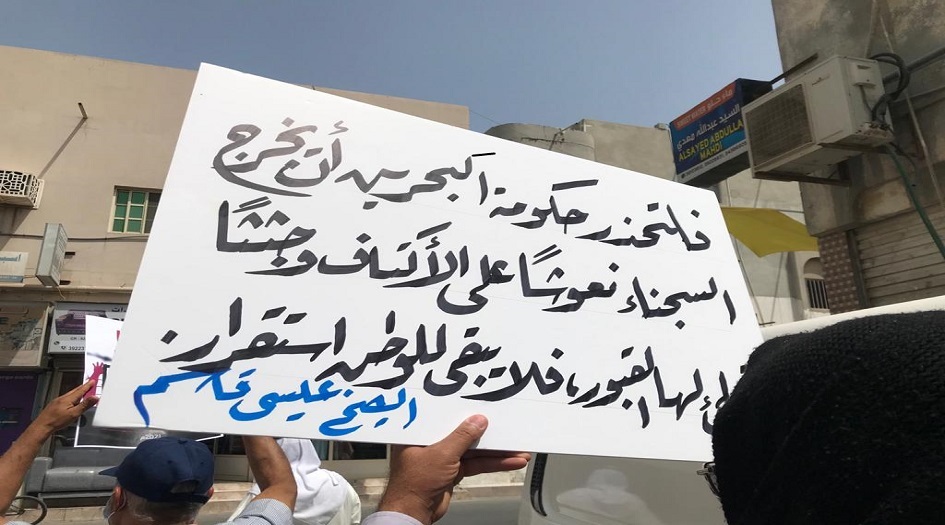 فلتحذر حكومة البحرين أن يخرج
السجناء نعوشاً على الأكتاف وجثثاً
القبور، فلا يبقى للوطن استقرار.
الشيخ عيسى قاسم
ماء حلو
SWEET WATER
السيد عبدالله مهدي
ALSAYED ABDULLA
MAHDI